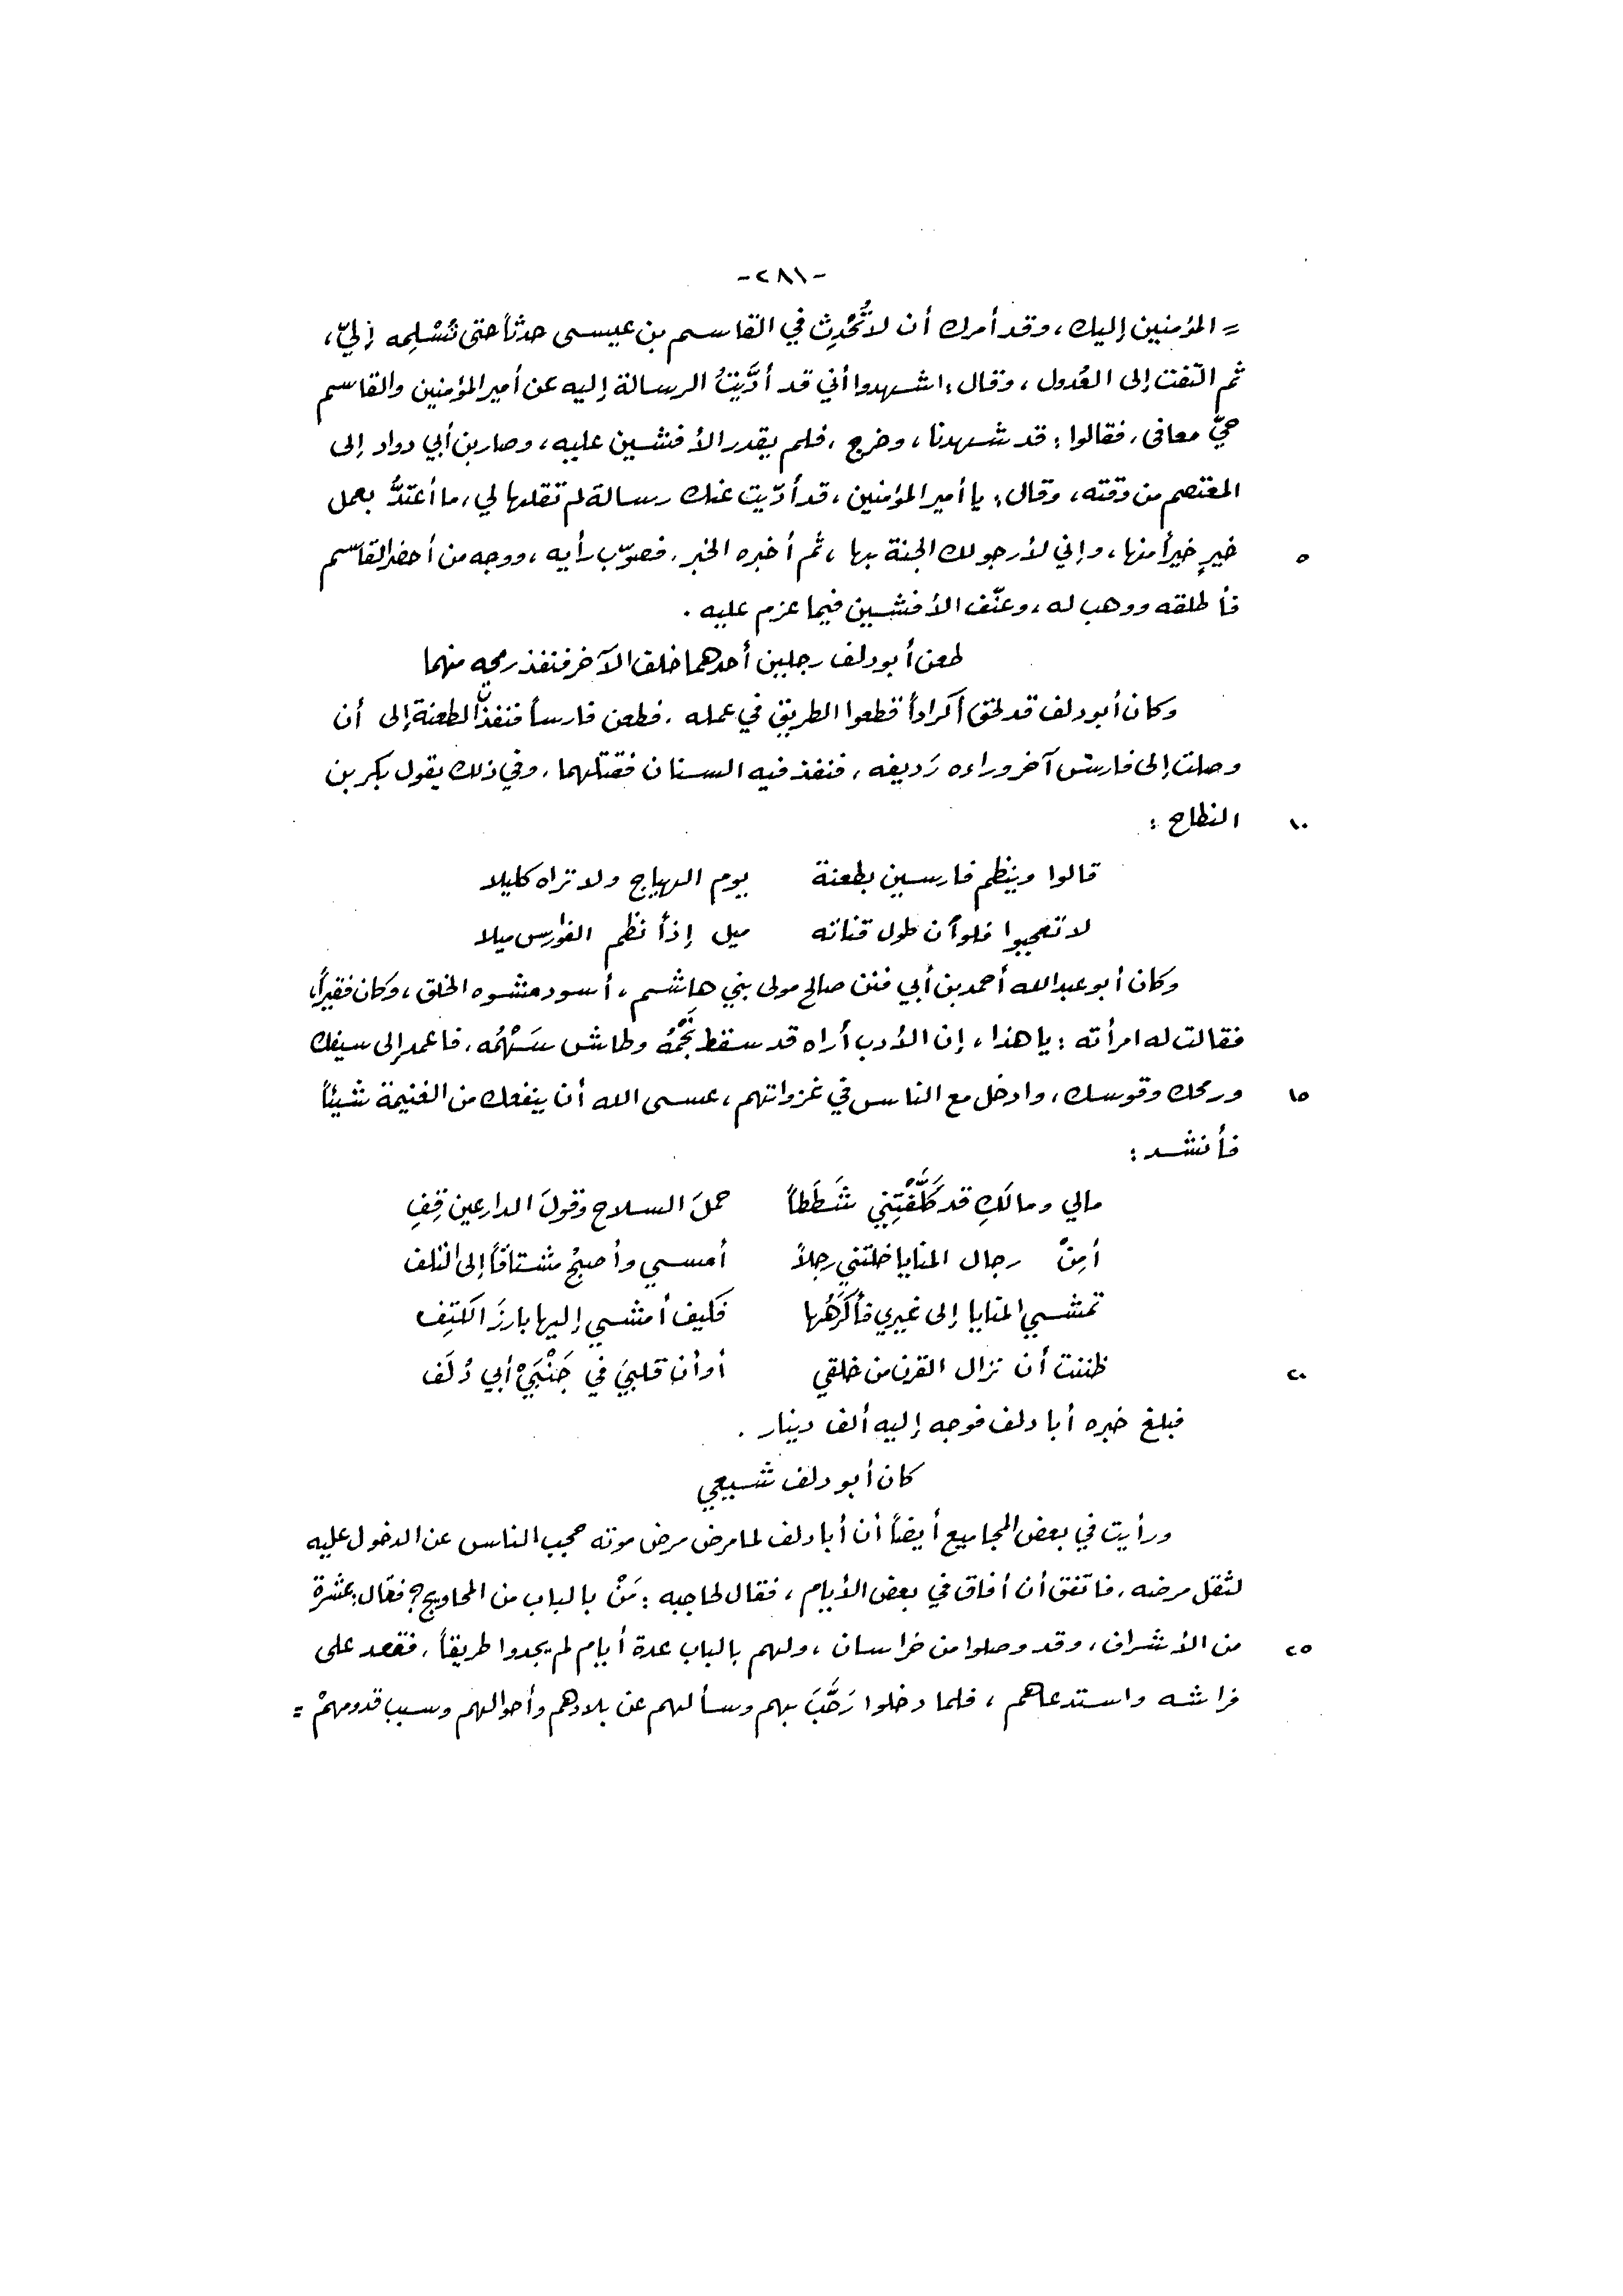 -٢٨١-
= المؤمنين إليك، وقد أمرك أن لا تُحْدِث في القاسم بن عيسى حدثاً حتى تُسْلِمه إليّ،
ثم التفت إلى العُدول، وقال: اشهدوا أني قد أدَّيتُ الرسالة إليه عن أمير المؤمنين والقاسم
حيٌّ معافى، فقالوا: قد شهدنا، وخرج، فلم يقدر الأفشين عليه، وصار بن أبي دواد إلى
المعتصم من وقته، وقال: يا أمير المؤمنين، قد أدّيت عنك رسالة لم تقلها لي، ما أعتدُّ بعمل
٥ خيرٍ خيراً منها، وإني لأرجو لك الجنة بها، ثم أخبره الخبر. فصوّب رأيه، ووجه من أحضر القاسم
فأطلقه ووهب له، وعنّف الأفشين فيما عزم عليه.
طعن أبو دلف رجلين أحدهما خلف الآخر فنفذ رمحه منهما
وكان أبو دلف قد لحق أكراداً قطعوا الطريق في عمله. فطعن فارساً فنفذت الطعنة إلى أن
وصلت إلى فارس آخر وراءه رَديفه، فنفذ فيه السنان فقتلهما. وفي ذلك يقول بكر بن
١٠ النطاح:
قالوا وينظم فارسين بطعنة يوم الهياج ولا تراه كليلا
لا تعجبوا فلو أن طول قناته ميل إذاً نظم الفوارس ميلا
وكان أبو عبد الله أحمد بن أبي فنن صالح مولى بني هاشم، أسود مشوه الخلق، وكان فقيراً،
فقالت له امرأته: يا هذا، إن الأدب أراه قد سقط نَجْمُه وطاش سَهْمُه. فاعمد إلى سيفك
١٥ ورمحك وقوسك، وادخل مع الناس في غزواتهم، عسى الله أن ينفعك من الغنيمة شيئاً
فأنشد:
مالي ومالَكِ قد كَلَّفْتِنِي شَطَطاً حملَ السلاح وقولَ الدارعين قِفِ
أمِنْ رجال المنايا خلتني رجلاً أمسي وأصبحُ مشتاقاً إلى التلف
تمشي المنايا إلى غيري فأكرَهُها فكيف أمشي إليها بارزَ الكتِف
٢٠ ظننت أن نزال القرن من خلقي أو أن قلبيَ في جَنْبَيْ أبي دُلَف
فبلغ خبره أبا دلف فوجه إليه ألف دينار.
كان أبو دلف شيعي
ورأيت في بعض المجاميع أيضاً أن أبا دلف لما مرض مرض موته حجب الناس عن الدخول عليه
لثقل مرضه. فاتفق أن أفاق في بعض الأيام، فقال لحاجبه: مَنْ بالباب من المحاويج؟ فقال: عشرة
٢٥ من الأشراف، وقد وصلوا من خراسان، ولهم بالباب عدة أيام لم يجدوا طريقاً. فقعد على
فراشه واستدعاهم، فلما دخلوا رَحَّبَ بهم وسألهم عن بلادهم وأحوالهم وسبب قدومهمْ =